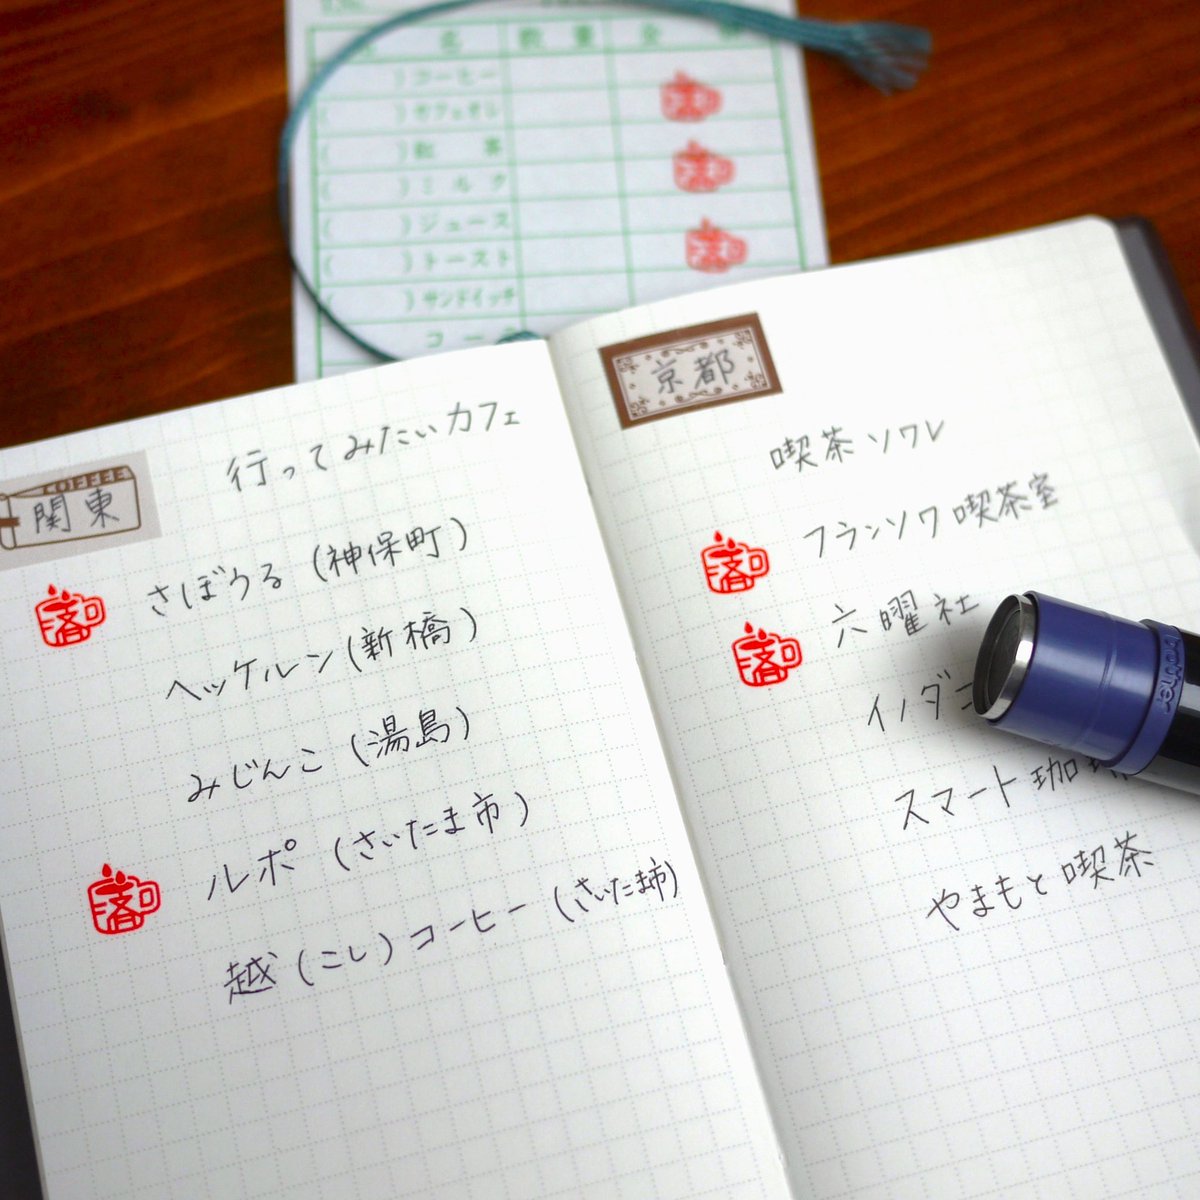 名 数量 金
コーヒー
カフェオレ
紅茶
ミルク
ジュース
トースト
サンドイッチ
コーラ
COFFEE
関東
行ってみたいカフェ
落
さぼうる (神保町)
ヘッケルン (新橋)
みじんこ (湯島)
落
ルポ (さいたま市)
越 (こし) コーヒー (さいたま市)
京都
喫茶ソワレ
落
フランソワ喫茶室
落
六曜社
イノダコ
スマート珈琲
やまもと喫茶
brother